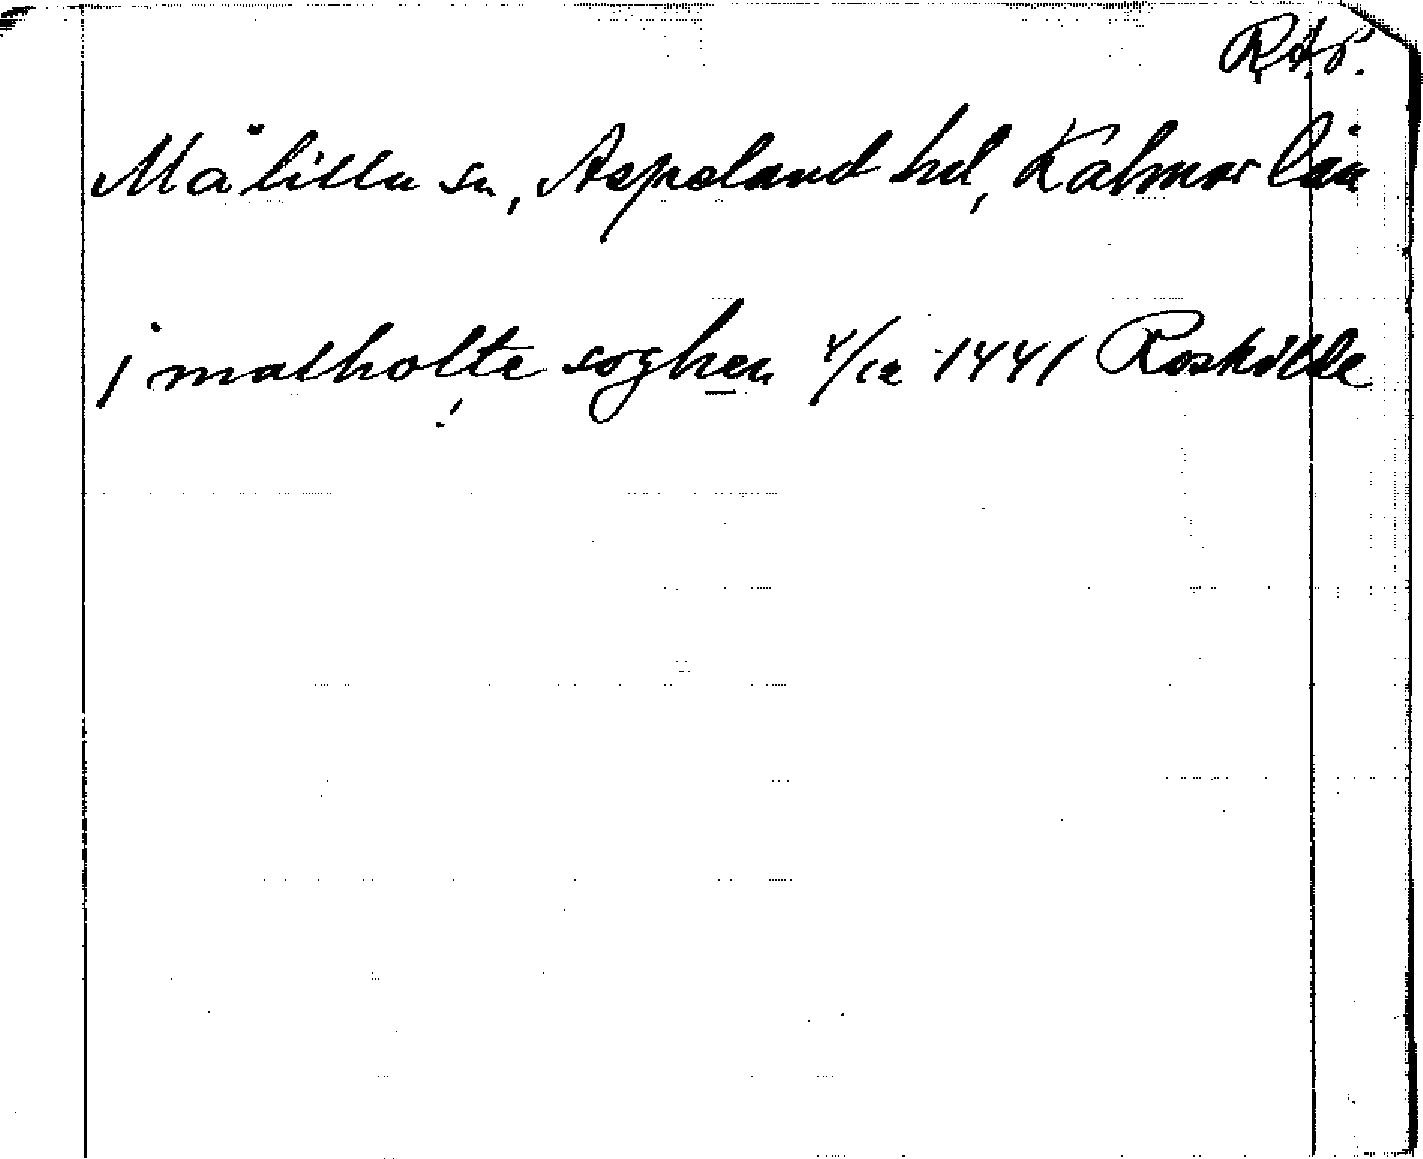 RAp.
Målilla sn, Aspeland hd, Kalmar län
j malholte soghen 4/12 1441 Roskilde
!